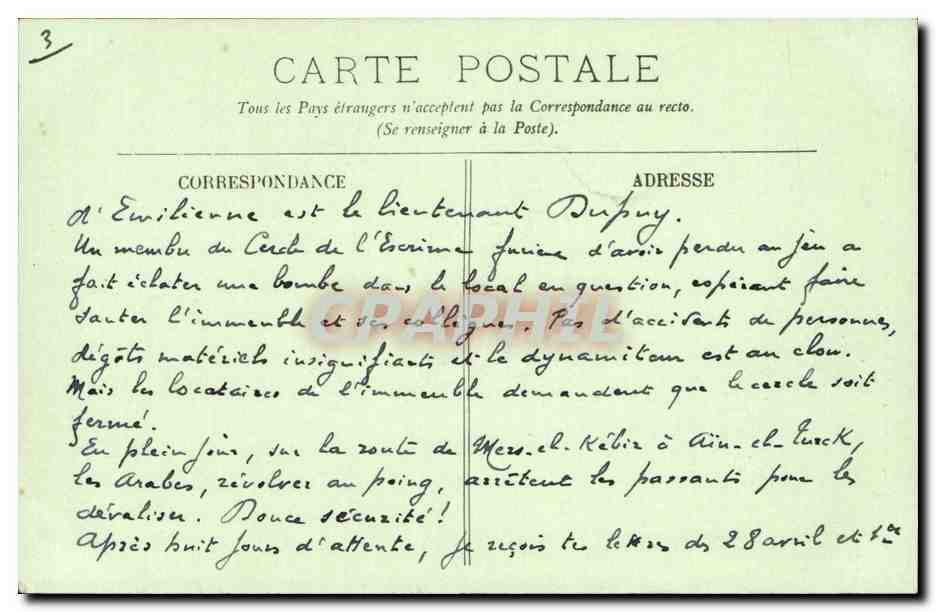 3
CARTE POSTALE
Tous les Pays étrangers n'acceptent pas la Correspondance au recto.
(Se renseigner à la Poste).
CORRESPONDANCE
ADRESSE
d'Emilienne est le lieutenant Dupuy.
Un membre du Cercle de l'Escrime furieux d'avoir perdu au jeu a
fait éclater une bombe dans le local en question, espérant faire
sauter l'immeuble et ses collègues. Pas d'accidents de personnes,
dégâts matériels insignifiants et le dynamiteur est au clou.
Mais les locataires de l'immeuble demandent que le cercle soit
fermé.
En plein jour, sur la route de Mers-el-Kébir à Aïn-el-Turck,
les Arabes, révolver au poing, arrêtent les passants pour les
dévaliser. Douce sécurité!
Après huit jours d'attente, je reçois tes lettres des 28 avril et 1er
CPAPHIL